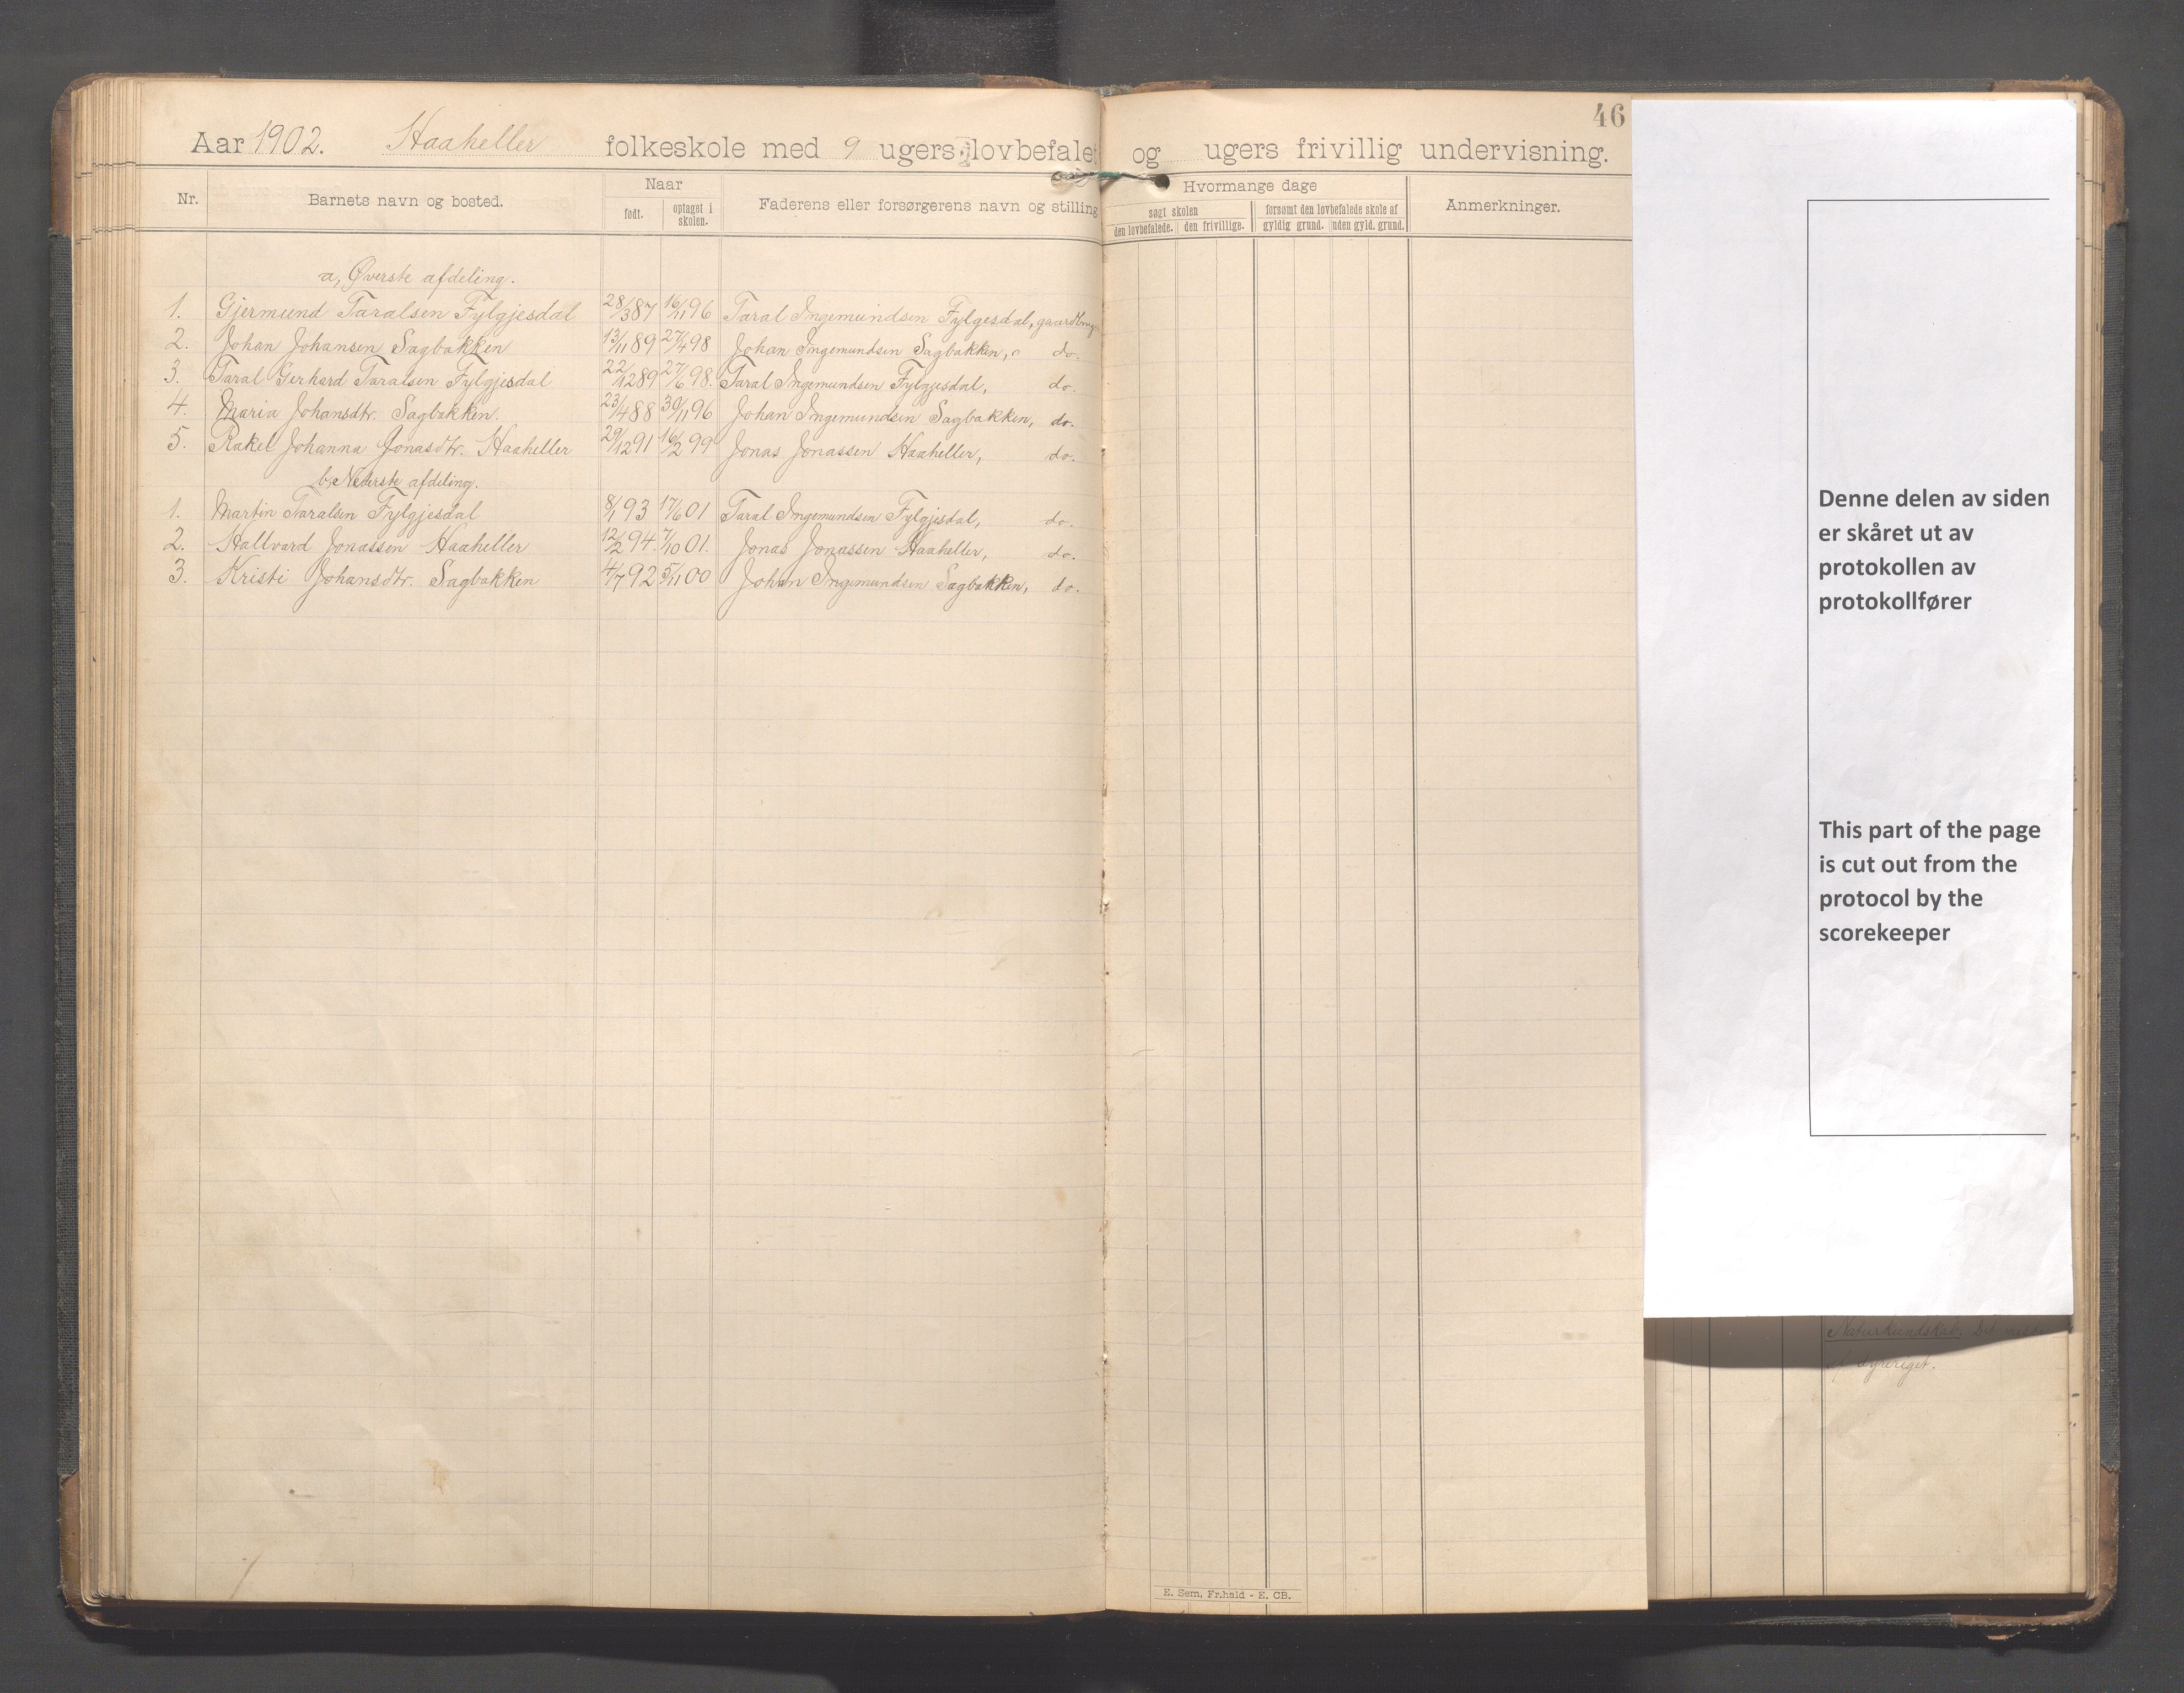 46
Aar 1902. Haaheller folkeskole med 9 ugers lovbefalet og ugers frivillig undervisning.
Nr. Barnets navn og bosted. Naar Faderens eller forsørgerens navn og stilling Hvormange dage Anmerkninger.
født. optaget i skolen. søgt skolen forsømt den lovbefalede skole af
den lovbefalede. den frivillige. gyldig grund. uden gyld. grund.
a, Øverste afdeling.
1. Gjermund Taralsen Fylgjesdal 28/3 87 16/11 96 Taral Ingemundsen Fylgesdal, gaardbruger
2. Johan Johansen Sagbakken 13/11 89 27/4 98 Johan Ingemundsen Sagbakken, do.
3. Taral Gerhard Taralsen Fylgjesdal 22/12 89 27/6 98. Taral Ingemundsen Fylgjesdal, do.
4. Maria Johansdtr. Sagbakken. 23/4 88 30/11 96 Johan Ingemundsen Sagbakken, do.
5. Rakel Johanna Jonasdtr. Haaheller 29/12 91 16/2 99 Jonas Jonassen Haaheller, do.
b, Nederste afdeling.
1. Martin Taralsen Fylgjesdal 8/1 93 17/6 01 Taral Ingemundsen Fylgjesdal, do.
2. Hallvard Jonassen Haaheller 12/2 94. 7/10 01. Jonas Jonassen Haaheller, do.
3. Kristi Johansdtr. Sagbakken 4/7 92 5/11 00 Johan Ingemundsen Sagbakken, do.
E. Sem, Fr.hald - E. CB.
Denne delen av siden
er skåret ut av
protokollen av
protokollfører
This part of the page
is cut out from the
protocol by the
scorekeeper
Naturkundskab. Det
af dyreriget.